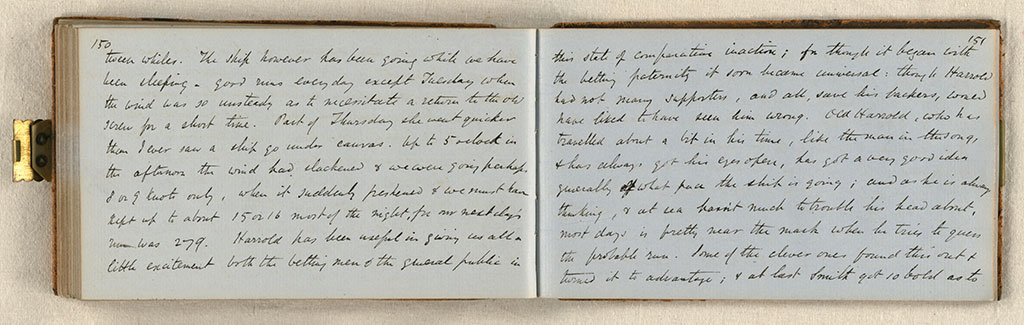 150
tween whiles. The ship however has been going while we have
been sleeping - good runs everyday except Tuesday when
the wind was so unsteady as to necessitate a return to the old
screw for a short time. Part of Thursday she went quicker
than I ever saw a ship go under canvas. Up to 5 o'clock in
the afternoon the wind had slackened & we were going perhaps
8 or 9 knots only, when it suddenly freshened & we must have
kept up to about 15 or 16 most of the night for our next days
run was 279. Harrold has been useful in giving us all a
little excitement both the betting men & the general public in
151
this state of comparative inaction; for though it began with
the betting paternity it soon became universal: though Harrold
had not many supporters, and all, save his backers, would
have liked to have seen him wrong. Old Harrold, who has
travelled about a bit in his time, like the man in the song,
& has always got his eyes open, has got a very good idea
generally of what pace the ship is going; and as he is always
thinking, & at sea hasn't much to trouble his head about,
most days is pretty near the mark when he tries to guess
the probable run. Some of the clever ones found this out &
turned it to advantage; & at last Smith got so bold as to